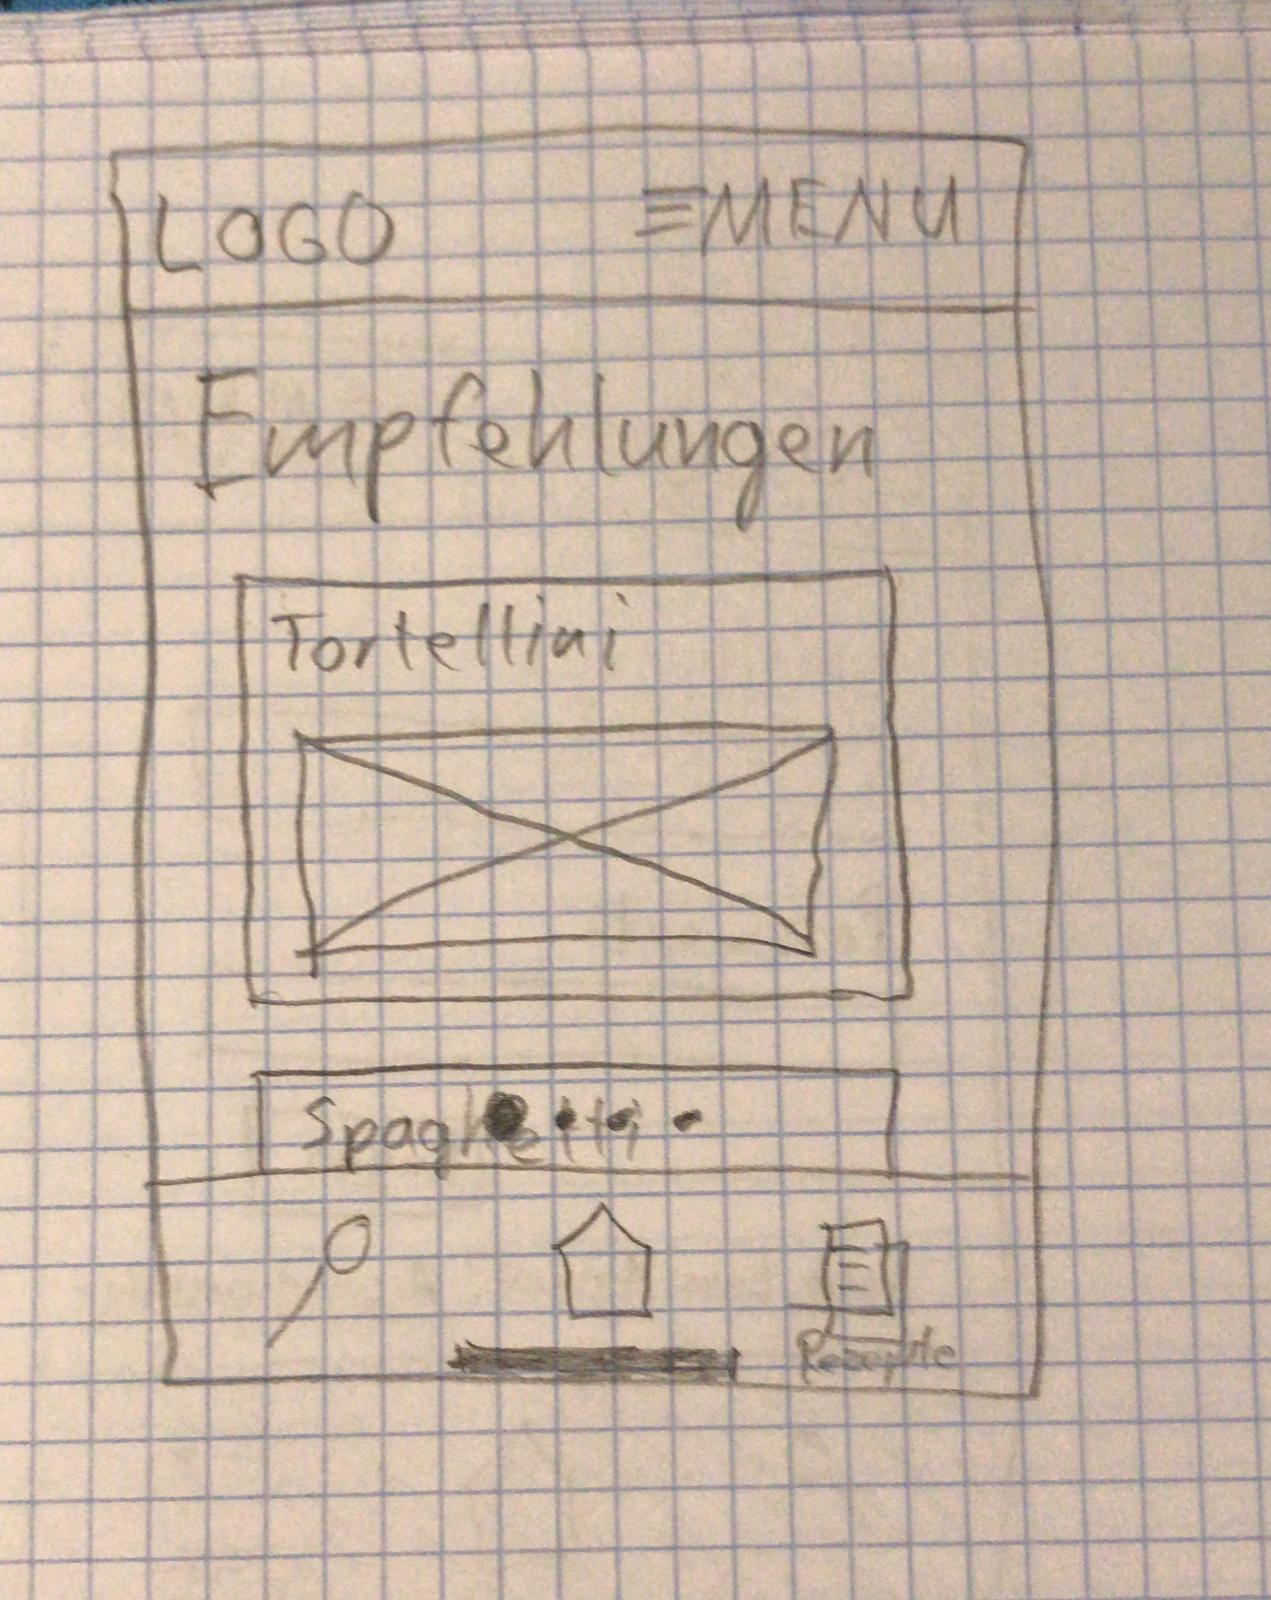 LOGO ≡MENU
Empfehlungen
Tortellini
Spaghetti
Rezepte